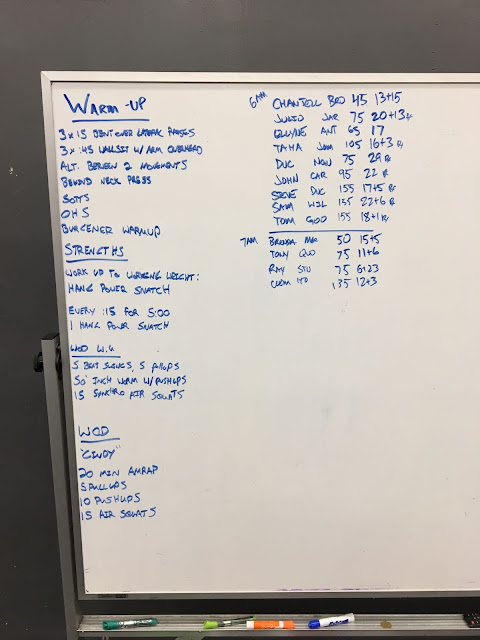 WARM-UP
3 x 15 BENT OVER LATERAL RAISES
3 x :45 WALLSIT W/ ARM OVERHEAD
ALT. BETWEEN 2 MOVEMENTS
BEHIND NECK PRESS
SOTTS
OHS
BURGENER WARMUP
STRENGTHS
WORK UP TO WORKING WEIGHT:
HANG POWER SNATCH
EVERY :15 FOR 5:00
1 HANG POWER SNATCH
WOD W.U
5 BEAT SWINGS, 5 PULLUPS
50' INCH WORM W/ PUSHUPS
15 SYNCHRO AIR SQUATS
WOD
"CINDY"
20 MIN AMRAP
5 PULLUPS
10 PUSHUPS
15 AIR SQUATS
6AM CHANTELL BRO 45 13+15
JULIO JAR 75 20+13 Rx
ANT 65 17
TAHA JAM 105 16+3 Rx
DUC NGU 75 29 Rx
JOHN CAR 95 22 Rx
STEVE DUC 155 17+5 Rx
SAM WIL 155 22+6 Rx
TOM GOO 155 18+1 Rx
7AM BRENDA 50 15+5
TONY QUO 75 11+6
RAY STU 75 6+23
135 12+3
EXPO